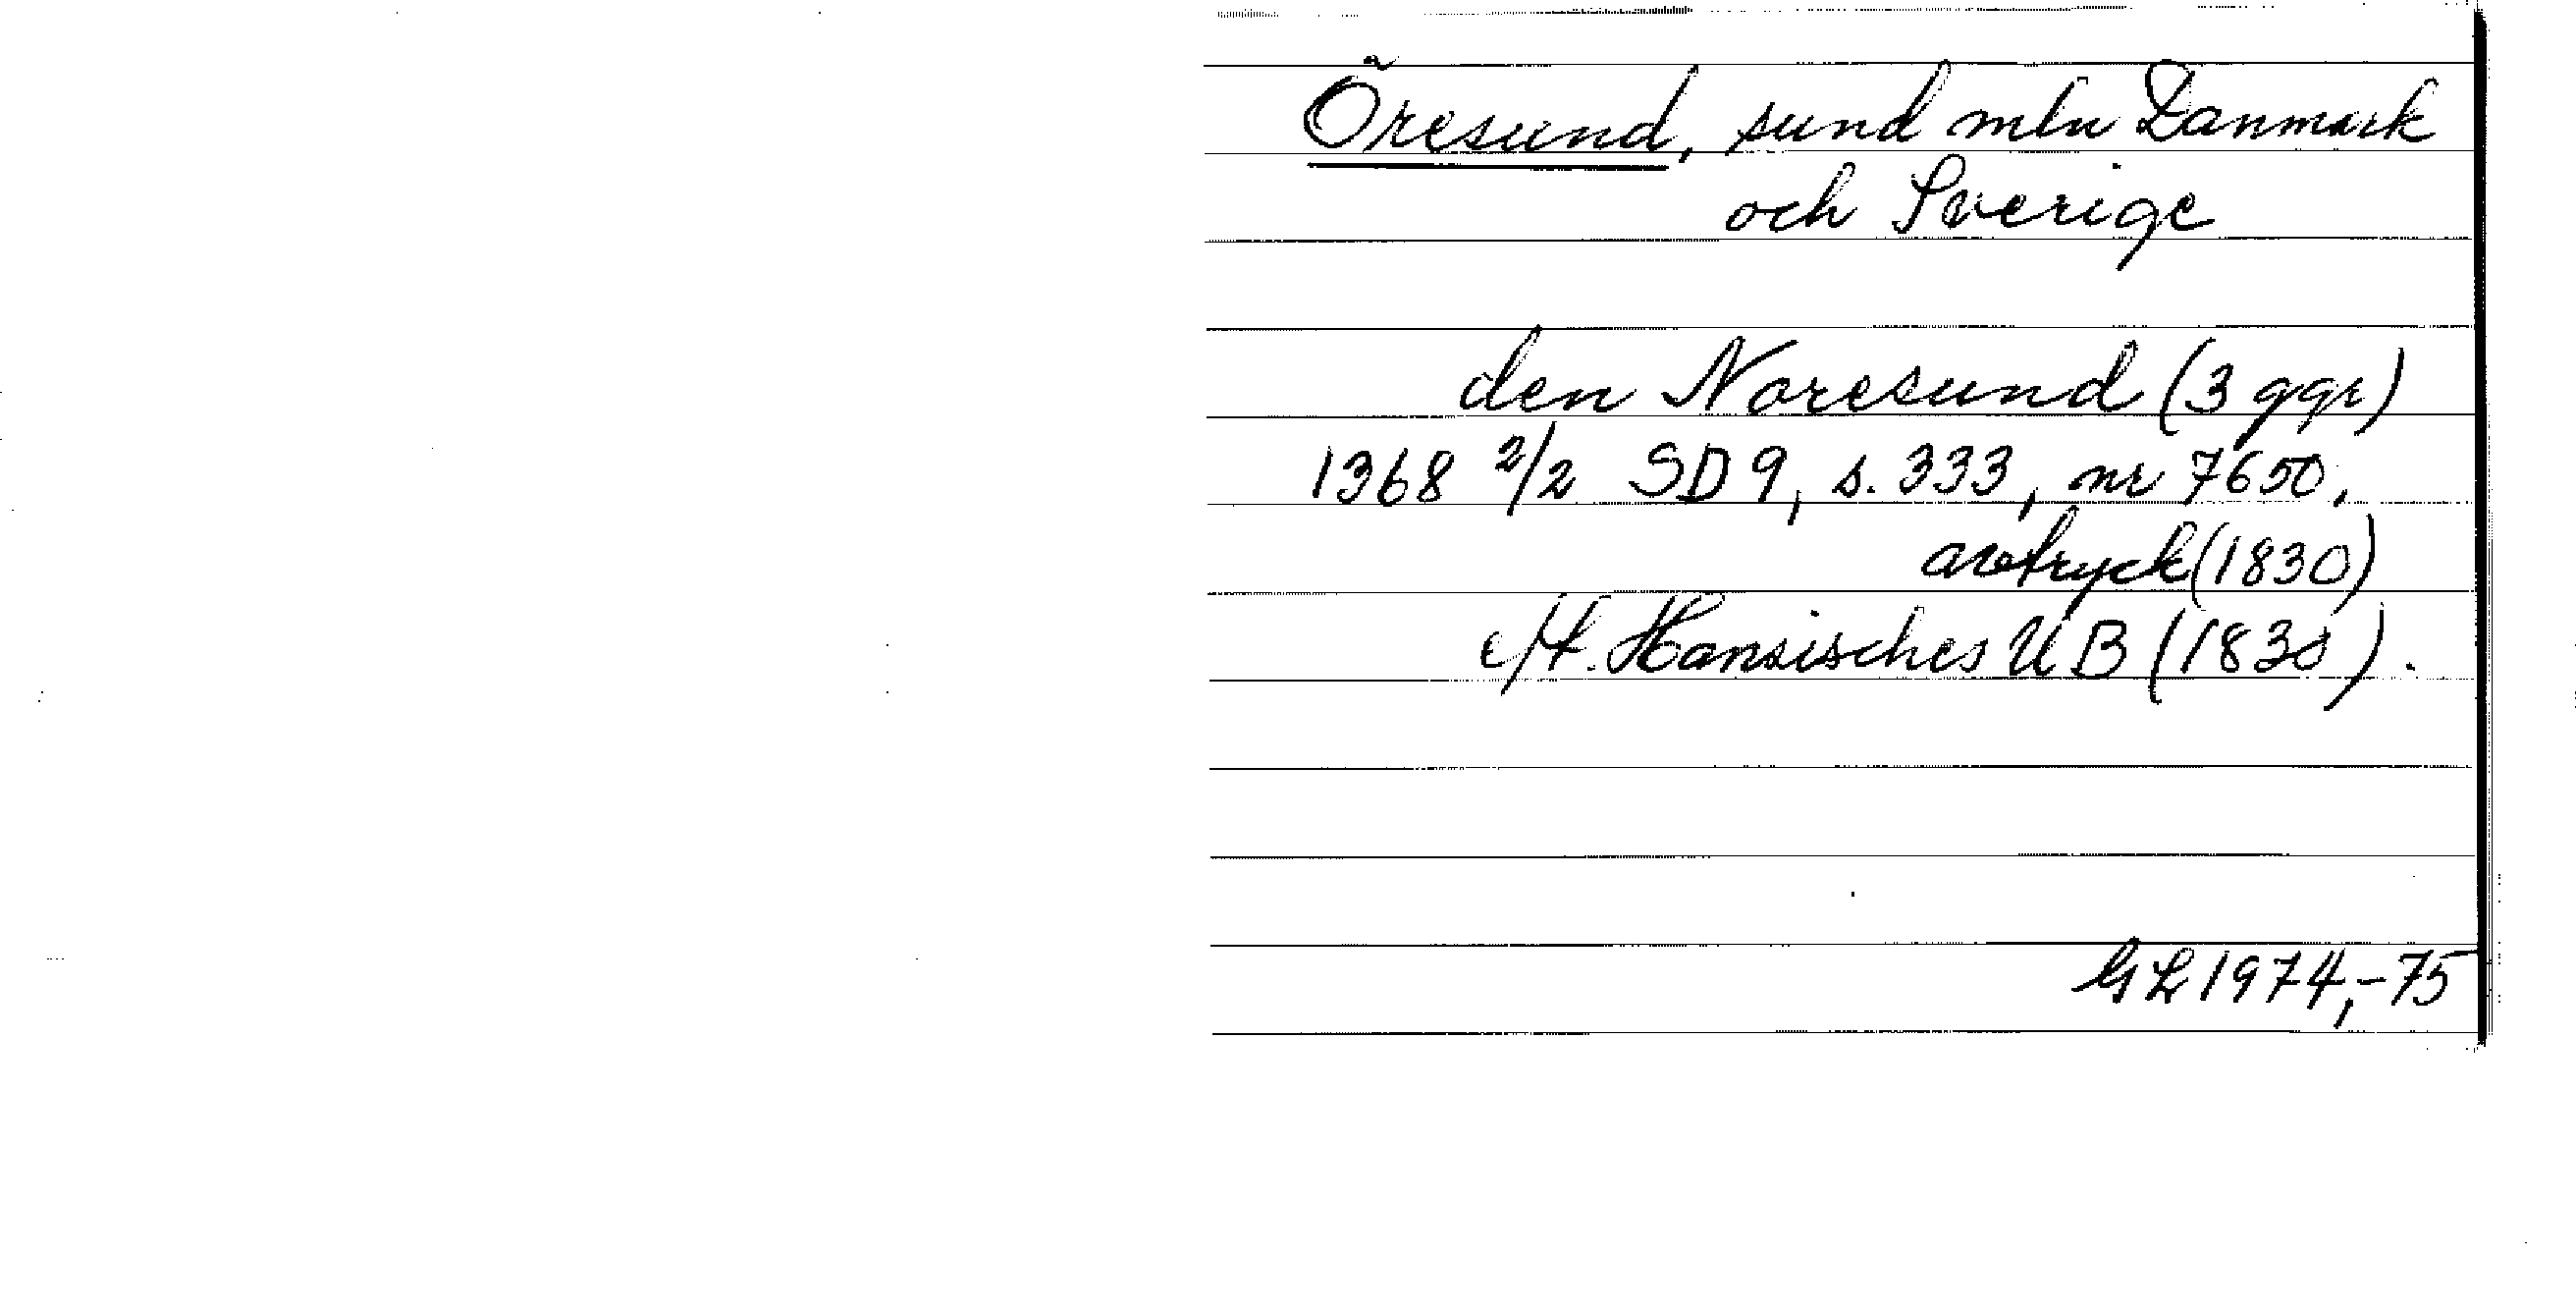 Öresund, sund mln Danmark
och Sverige
den Noresund (3 ggr)
1368 2/2 SD 9, s. 333, nr 7650,
avtryck (1830)
e/t. Hansisches UB (1830).
GL 1974,-75